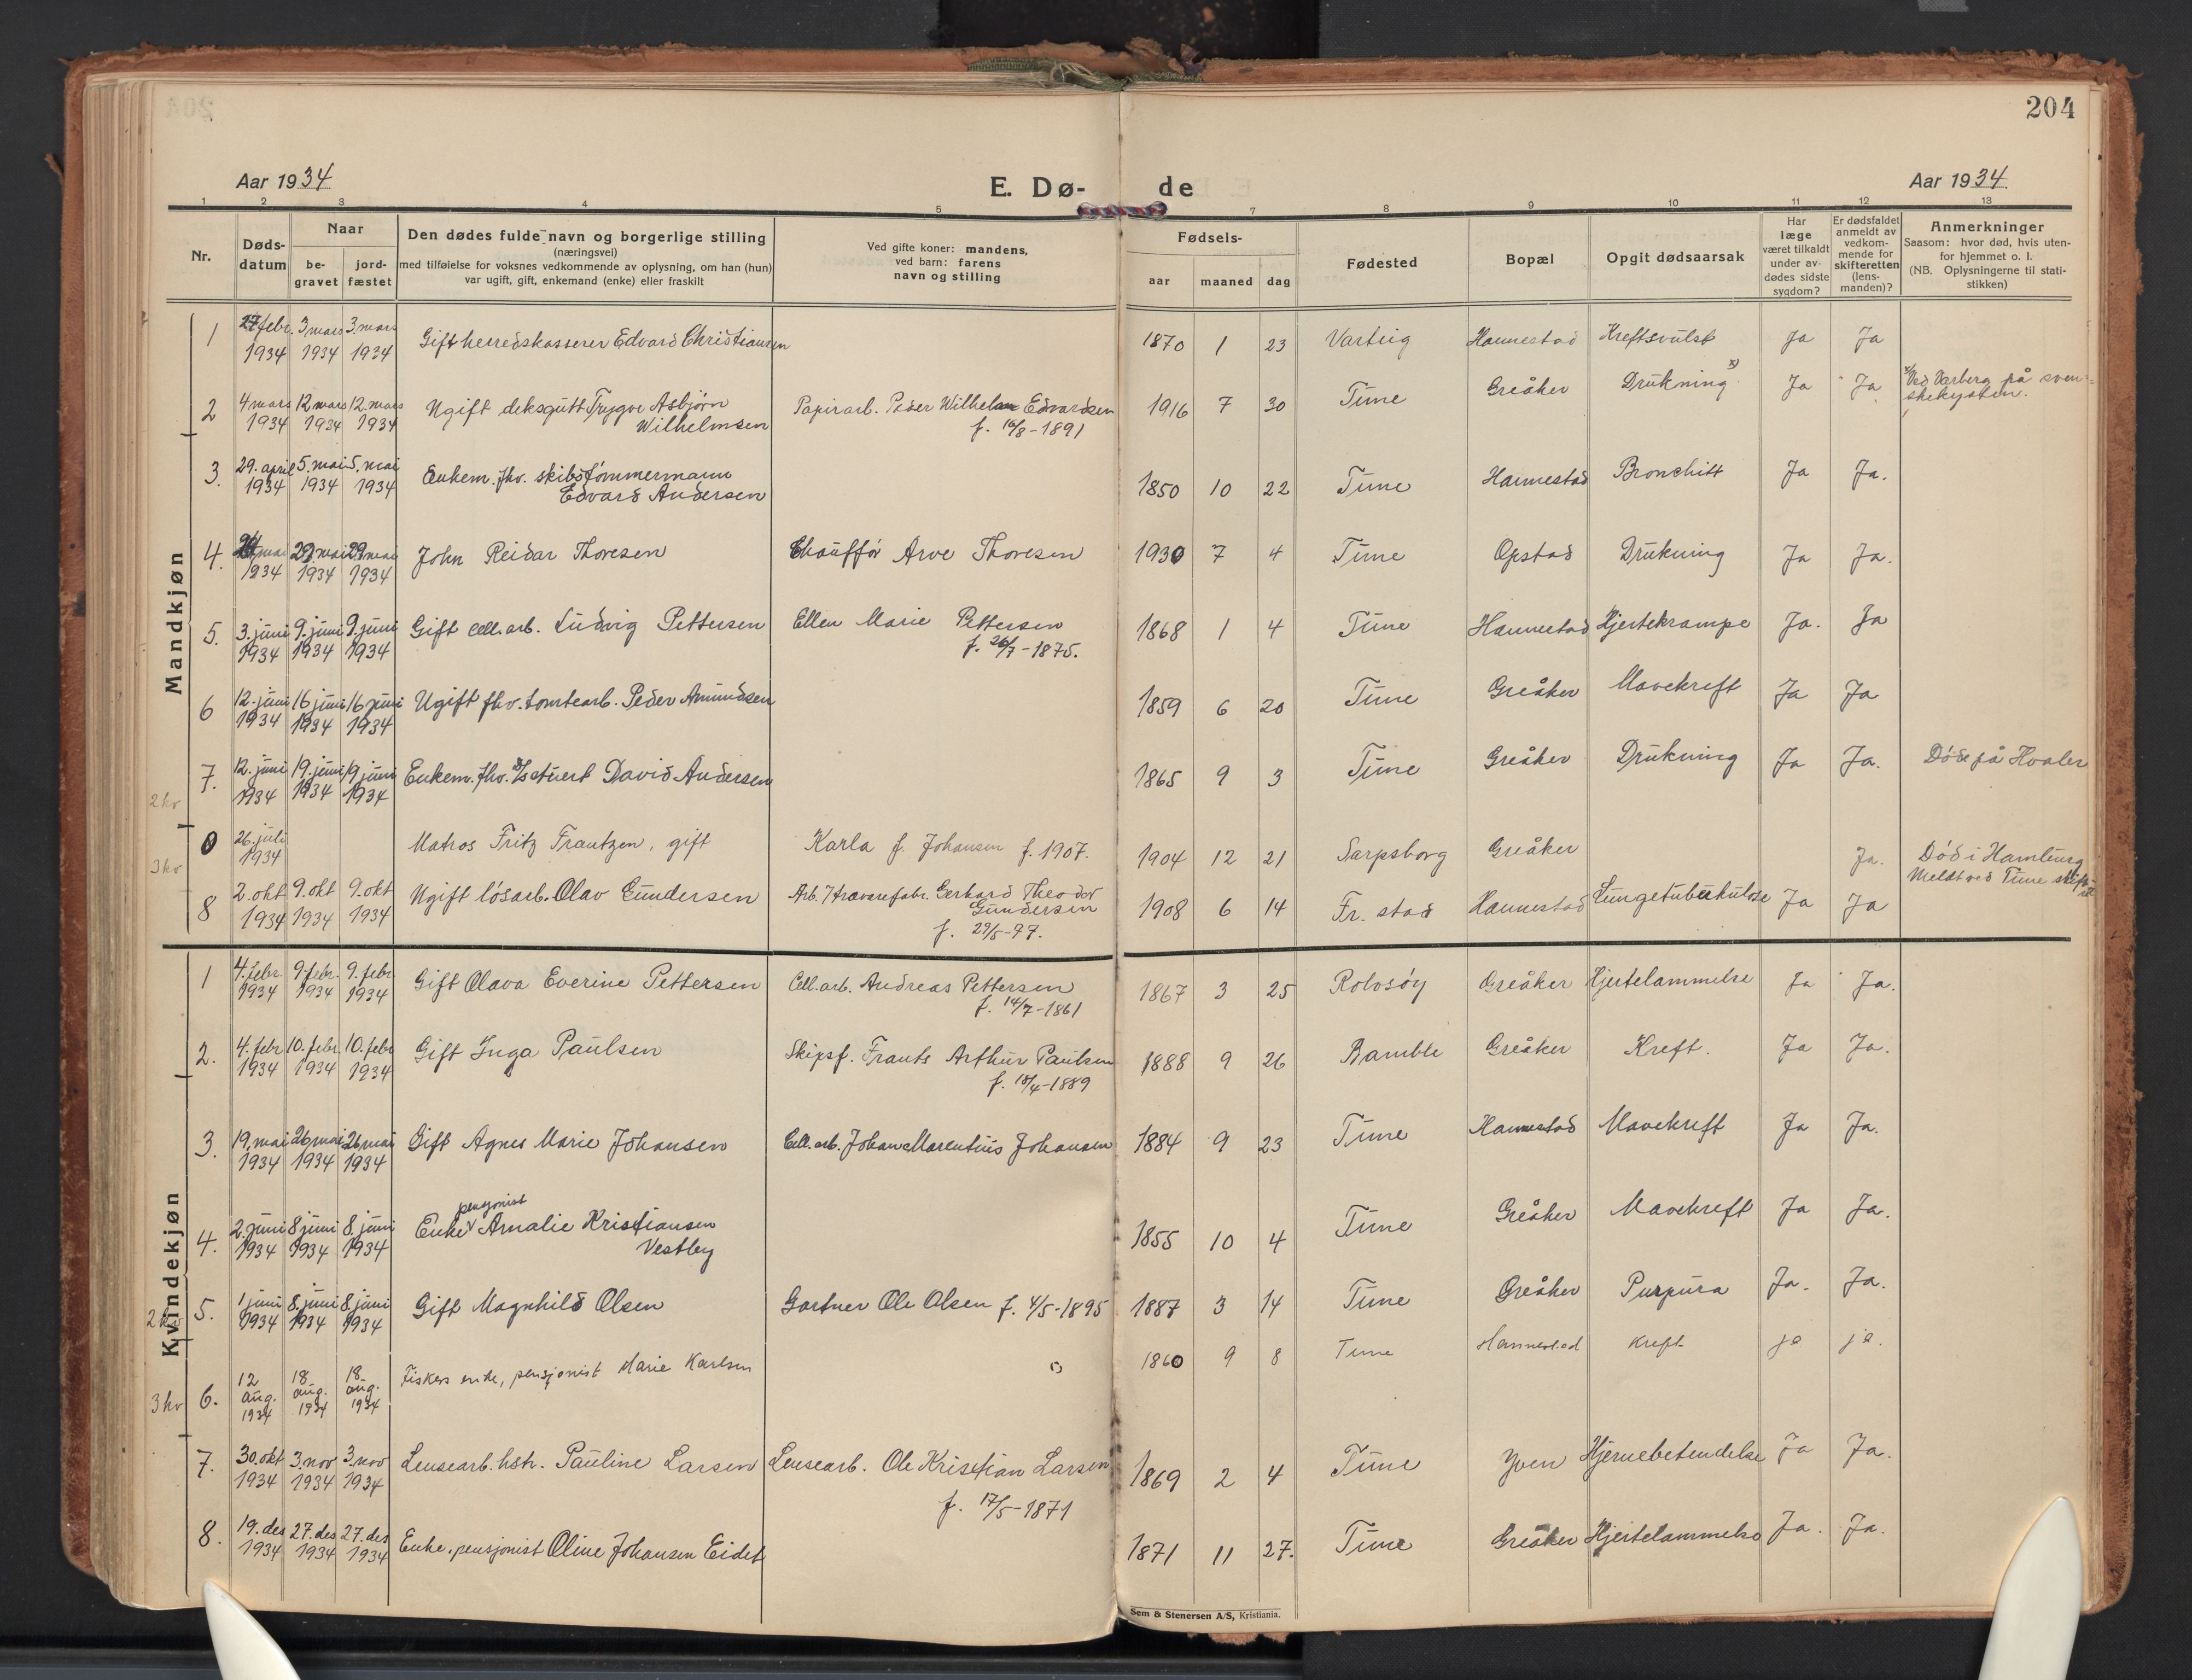 204
Aar 1934
E. Dø-
de
Aar 1934.
1 2 3 4 5 7 8 9 10 11 12 13
Nr.
Døds-
datum
Naar
be-
gravet
jord-
fæstet
Den dødes fulde navn og borgerlige stilling
(næringsvei)
med tilføielse for voksnes vedkommende av oplysning, om han (hun)
var ugift, gift, enkemand (enke) eller fraskilt
Ved gifte koner: mandens,
ved barn: farens
navn og stilling
Fødsels-
aar maaned dag
Fødested
Bopæl
Opgit dødsaarsak
Har
læge
været tilkaldt
under av-
dødes sidste
sygdom?
Er dødsfaldet
anmeldt av
vedkom-
mende for
skifteretten
(lens-
manden)?
Anmerkninger
Saasom: hvor død, hvis uten-
for hjemmet o. l.
(NB. Oplysningerne til stati-
stikken)
Mandkjøn
1 27 febr. 3 mars 3. mars Gift herredskasserer Edvard Christiansen 1870 1 23 Varteig Hannestad Kreftsvulst Ja Ja
1934 1934 1934
2 4 mars 12 mars 12. mars Ugift deksgutt Trygve Asbjørn Papirarb. Peder Wilhelm Edvardsen 1916 7 30 Tune Greåker Drukning x) Ja Ja x/ Ved Varberg på sven-
1934 1934 1934 Wilhelmsen f. 16/8-1891 skekysten.
3. 29. april 5. mai 5. mai Enkem. fhv. skibstømmermann 1850 10 22 Tune Hannestad Bronchitt Ja Ja.
1934 1934 1934 Edvard Andersen
4. mai 29 mai 29 mai John Reidar Thoresen Chauffør Arve Thoresen 1930 7 4 Tune Opstad Drukning Ja Ja.
1934 1934 1934
5. 3. juni 9. juni 9. juni Gift cell. arb. Ludvig Pettersen Ellen Marie Pettersen 1868 1 4 Tune Hannestad Hjertekrampe Ja. Ja
1934 1934 1934 f. 26/7-1875.
6 12. juni 16 juni 16 juni Ugift fhv. tomtearb. Peder Amundsen 1859 6 20 Tune Greåker Mavekreft Ja Ja
1934 1934 1934
7. 12. juni 19. juni 19 juni Enkem. fhv. stuert David Andersen 1865 9 3 Tune Greåker Drukning Ja Ja. Døde på Hvaler
1934 1934 1934
2 kv
0 26. juli Matros Fritz Frantzen, gift Karla f. Johansen f. 1907. 1904 12 21 Sarpsborg Greåker Ja. Død i Hamburg
1934 Meldt ved Tune
3 kv
8 2. okt 9. okt 9. okt Ugift løsarb. Olav Gundersen Arb. Gerhard Theodor 1908 6 14 Fr. stad Hannestad Lungetuberkulose Ja Ja
1934 1934 1934 Gundersen
f. 29/5-97.
Kvindekjøn
1 4. febr. 9. febr. 9. febr Gift Olava Everine Pettersen Cell. arb. Andreas Pettersen 1867 3 25 Rolvsøy Greåker Hjertelammelse Ja Ja.
1934 1934 1934 f. 14/7-1861
2. 4. febr 10. febr. 10. febr Gift Inga Paulsen Skipsf. Frants Arthur Paulsen 1888 9 26 Bamble Greåker Kreft. Ja Ja.
1934 1934 1934 f. 18/4-1889
3. 19. mai 26 mai 26 mai Gift Agnes Marie Johansen Cell. arb. Johan Marentius Johansen 1884 9 23 Tune Hannestad Mavekreft Ja Ja.
1934 1934 1934
pensjonist
4. 2. juni 8 juni 8. juni Enke Amalie Kristiansen 1855 10 4 Tune Greåker Mavekreft Ja Ja.
1934 1934 1934 Vestby
5. 1 juni 8. juni 8. juni Gift Magnhild Olsen Gartner Ole Olsen f. 4/5-1895 1887 3 14 Tune Greåker Purpura Ja. Ja.
1934 1934 1934
6. 12 18 18 Fiskers enke, pensjonist Marie Karlsen 1860 9 8 Tune Hannestad Kreft ja ja.
aug. aug. aug.
1934 1934 1934
3 kv
7. 30. okt 3. nov 3. nov Lensearb. hstr. Pauline Larsen Lensearb. Ole Kristian Larsen 1869 2 4 Tune Yven Hjernebetendelse Ja Ja.
1934 1934 1934 f. 17/5-1871
8. 19. des 27. des 27. des Enke, pensjonist Oline Johansen Eidet 1871 11 27. Tune Greåker Hjertelammelse Ja. Ja.
1934 1934 1934
Sem & Stenersen A/S, Kristiania.